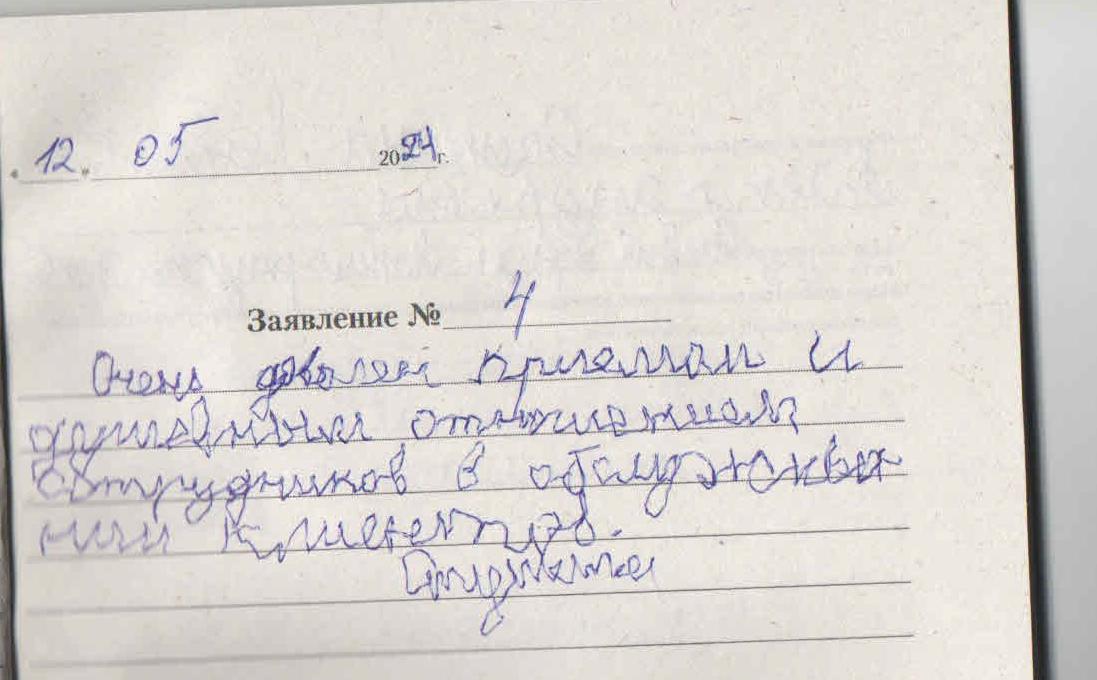 "12" 05 2024 г.
Заявление № 4
Очень доволен приемом и
душевным отношением
сотрудников в обслужива
нии клиентов.